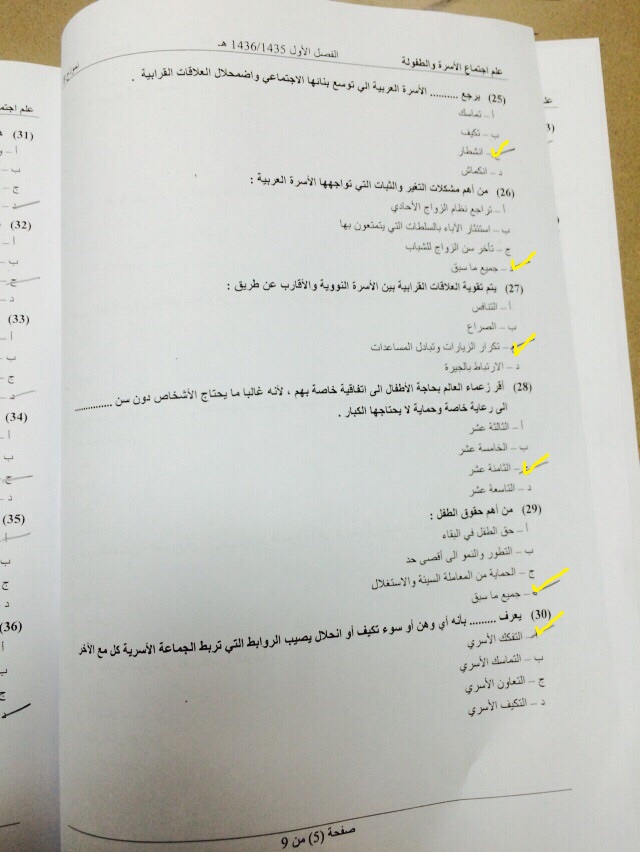 علم اجتماع الأسرة والطفولة الفصل الأول 1436/1435 هـ
(25) يرجع .......... الأسرة العربية الي توسع بنائها الاجتماعي واضمحلال العلاقات القرابية .
أ – تماسك
ب – تكيف
– انشطار
د – انكماش
(26) من أهم مشكلات التغير والثبات التي تواجهها الأسرة العربية :
أ – تراجع نظام الزواج الأحادي
ب – استئثار الآباء بالسلطات التي يتمتعون بها
ج – تأخر سن الزواج للشباب
د – جميع ما سبق
(27) يتم تقوية العلاقات القرابية بين الأسرة النووية والأقارب عن طريق :
أ – التنافس
ب – الصراع
– تكرار الزيارات وتبادل المساعدات
د – الارتباط بالجيرة
(28) أقر زعماء العالم بحاجة الأطفال الى اتفاقية خاصة بهم ، لأنه غالبا ما يحتاج الأشخاص دون سن .............
الى رعاية خاصة وحماية لا يحتاجها الكبار .
أ – الثالثة عشر
ب – الخامسة عشر
– الثامنة عشر
د – التاسعة عشر
(29) من أهم حقوق الطفل :
أ – حق الطفل في البقاء
ب – التطور والنمو الى أقصى حد
ج – الحماية من المعاملة السيئة والاستغلال
– جميع ما سبق
(30) يعرف ......... بأنه أي وهن أو سوء تكيف أو انحلال يصيب الروابط التي تربط الجماعة الأسرية كل مع الآخر
– التفكك الأسري
ب – التماسك الأسري
ج – التعاون الأسري
د – التكيف الأسري
صفحة (5) من 9
علم اجتما
(31)
أ –
ب –
ج –
د –
(32)
أ –
ب –
ج –
د –
(33)
أ –
ب –
ج –
د –
(34)
أ –
ب –
ج –
د –
(35)
أ –
ب
ج
د
(36)
أ
ب
ج
د